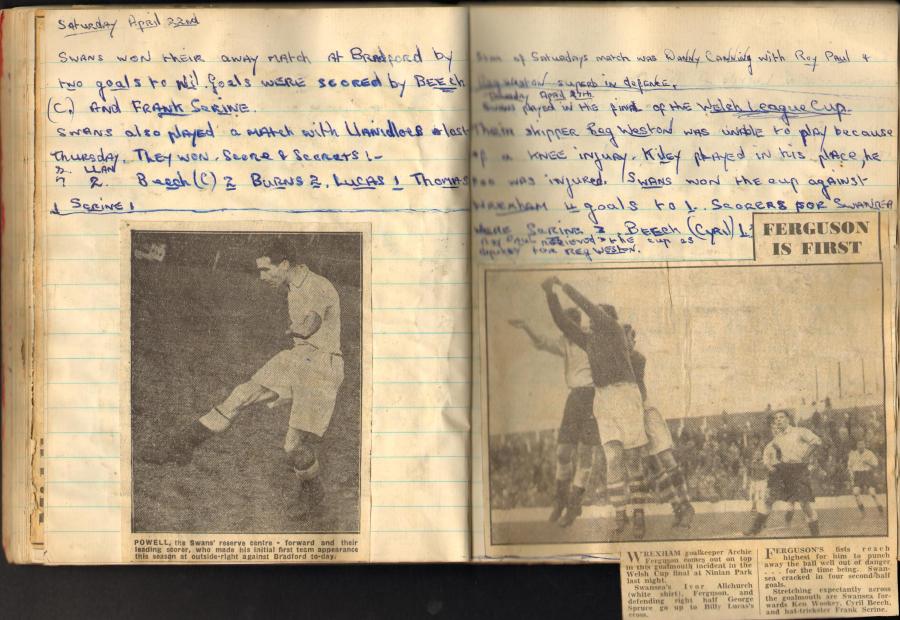 Saturday April 22nd
Swans won their away match at Bradford by
two goals to Nil. Goals were scored by Beech
(C.) and Frank Scrine.
Swans also played a match with Llanidloes last
Thursday. They won. Score & Scorers :-
LLAN
2. Beech (C) 2 Burns 2, Lucas 1 Thomas
1 Scrine 1
POWELL, the Swans' reserve centre - forward and their
leading scorer, who made his initial first team appearance
this season at outside-right against Bradford to-day.
of Saturdays match was Danny Canning with Roy Paul &
Reg Weston superb in defence.
Swans played in the final of the Welsh League Cup.
Their skipper Reg Weston was unable to play because
of a knee injury. Kiley played in his place, he
too was injured. Swans won the cup against
Wrexham 4 goals to 1. Scorers for Swansea
were Scrine 3, Beech (Cyril) 1.
Roy Paul recieved the cup as
deputy for Reg Weston.
FERGUSON
IS FIRST
WREXHAM goalkeeper Archie
Ferguson comes out on top
in this goalmouth incident in the
Welsh Cup final at Ninian Park
last night.
Swansea's Ivor Allchurch
(white shirt), Ferguson, and
defending right half George
Spruce go up to Billy Lucas's
cross.
FERGUSON'S fists reach
highest for him to punch
away the ball well out of danger
. . . for the time being. Swan-
sea cracked in four second-half
goals.
Stretching expectantly across
the goalmouth are Swansea for-
wards Ken Wookey, Cyril Beech,
and hat-trickster Frank Scrine.